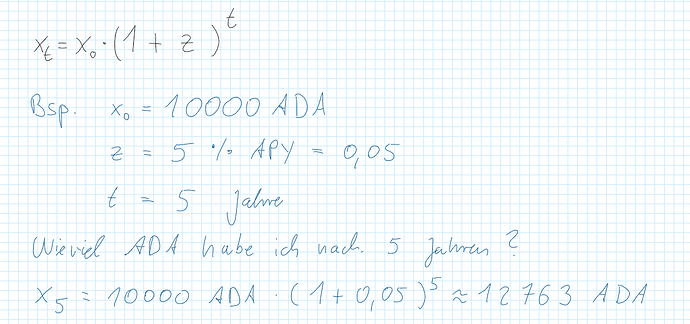 xₜ = x₀ · (1 + z)ᵗ
Bsp. x₀ = 10000 ADA
z = 5 % APY = 0,05
t = 5 Jahre
Wieviel ADA habe ich nach 5 Jahren ?
X₅ = 10000 ADA · (1 + 0,05)⁵ ≈ 12763 ADA